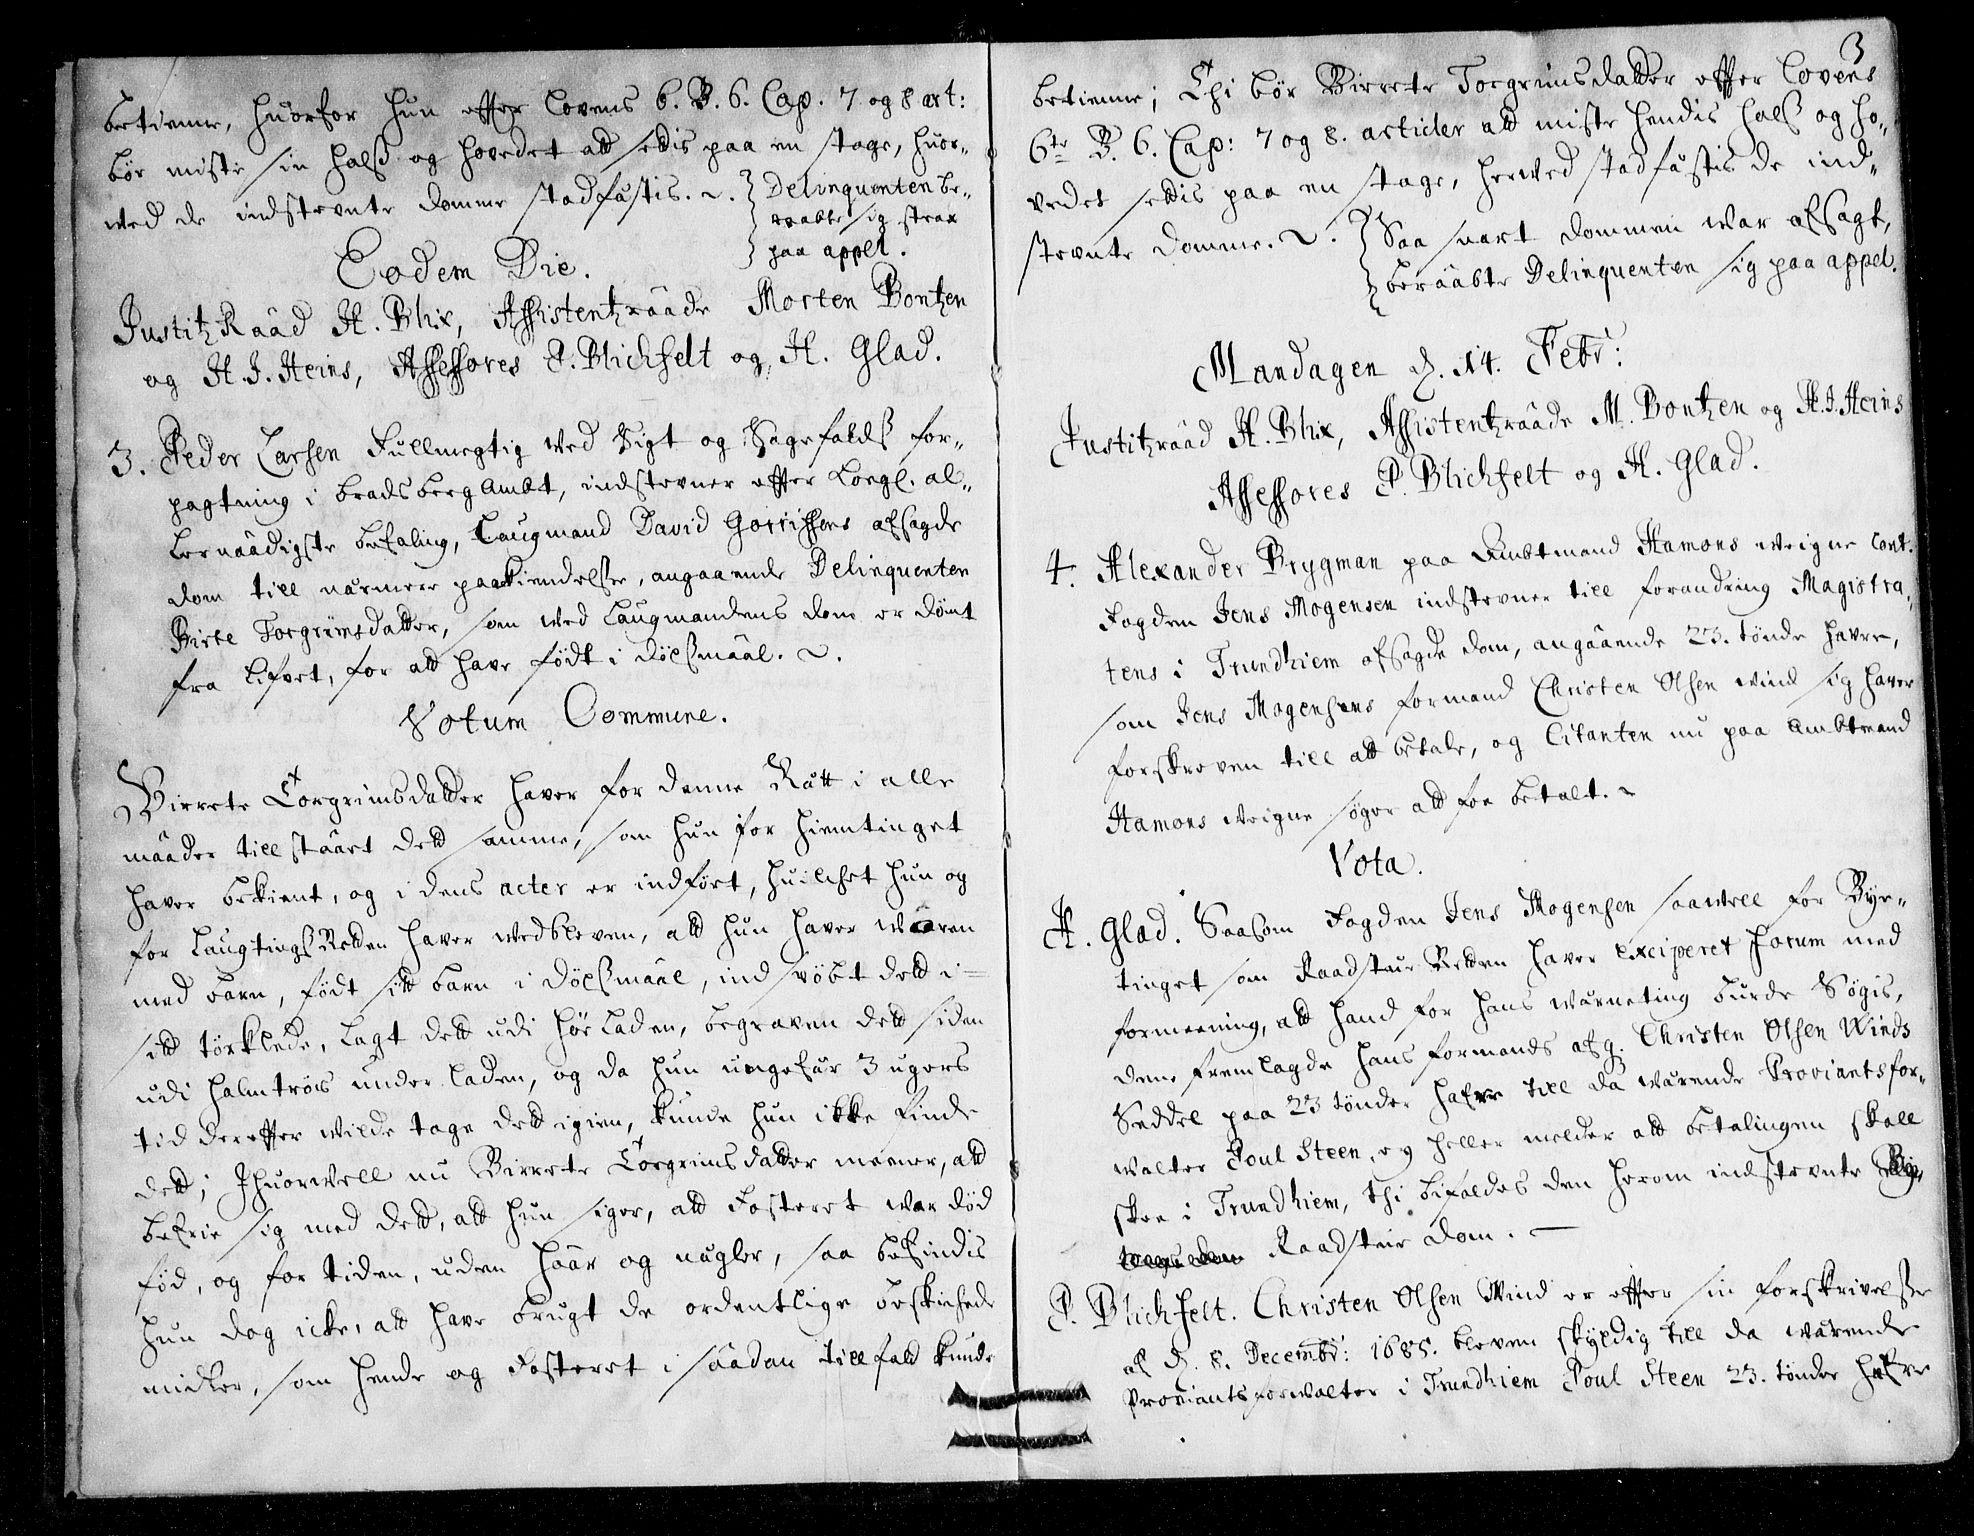 betienne, huorfor hun effter lovens 6. B. 6. Cap. 7 og 8 art:
bör miste sin halß og hovedet att settis paa en stage, huor-
wed de indstevnte domme stadfästis.
Delinquenten be-
raabte sig strax
paa appel.
Eodem Die.
JustitzRaad H. Blix, Assistentzraade Morten Bontzen
og H. J. Heins, Assessores P. Blichfelt og H. Glad.
3. Peder Larsen Fullmegtig wed Sigt og Sagefaldß for-
pagtning i bradsberg Ambt, indstevner effter Kongl. al-
lernaadigste befaling, Laugmand David Gorrissens afsagde
dom till närmere paakiendelße, angaaende Delinquenten
Birte Torgrimsdatter, som wed Laugmandens dom er dömt
fra lifvet, for att have födt i dölßmaal.
Votum Commune.
Birrete Torgrimsdatter haver for denne Rätt i alle
maader till staaet dett samme, som hun for hiemtinget
haver bekient, og i dens acter er indfört, huilchet hun og
for LaugtingßRetten haver wedbleven, att hun haver wæren
med barn, födt sitt barn i dölßmaal, ind svöbt dett i
sitt törklede, lagt dett udi höe laden, begraven dett siden
udi halmtröes under laden, og da hun ungefär 3 ugers
tid dereffter wilde tage dett igien, kunde hun ikke finde
dett; Ihuorwell nu Birrete Torgrimsdatter meener, att
befrie sig med dett, att hun siger, att fosteret war död
föd, og for tiden, uden haar og nagler, saa befindis
hun dog icke, att have brugt de ordentlige beskichede
midler, som hende og fosteret i saadan tillfald kunde
3
betienne; Thi bör Birrete Torgrimsdatter effter lovens
6te B. 6. Cap: 7 og 8. articler att miste hendis halß og ho-
vedet settis paa en stage, herwed stadfästis de ind-
stevnte domme.
Saa snart dommen war afsagt,
beraabte Delinquenten sig paa appel.
Mandagen d. 14. Febr:
Justitzraad H. Blix, Assistentzraade M. Bontzen og H. J. Heins
Assessores P. Blichfelt og H. Glad.
4. Alexander Brygman paa Ambtmand Hamons weigne cont.
Fogden Jens Mogensen indstevner till forandring Magistra-
tens i Trundhiem afsagde dom, angaaende 23. tönde havre,
som Jens Mogensens formand Christen Olsen wind sig haver
forskreven till att betale, og Citanten nu paa Ambtmand
Hamons weigne söger att faa betalt.
Vota.
H. Glad. Saasom Fogden Jens Mogensen saawell for Bye-
tinget som Raadstue Retten haver exciperet forum med
formeening, att hand for hans wärneting burde Sögis,
dend fremlagde hans formands afg. Christen Olsen Winds
Seddel paa 23 tönder hafre till da wärende Proviantsfor-
walter Poul Steen, ey heller melder att betalingen skall
skee i Trundhiem, thi bifaldes den herom indstevnte
Raadstue dom.
P. Blichfelt. Christen Olsen Wind er effter sin forskrivelße
af d. 8. Decembr: 1685. bleven skyldig till da wärende
Proviantsforwalter i Trundhiem Poul Steen 23. tönder hafre